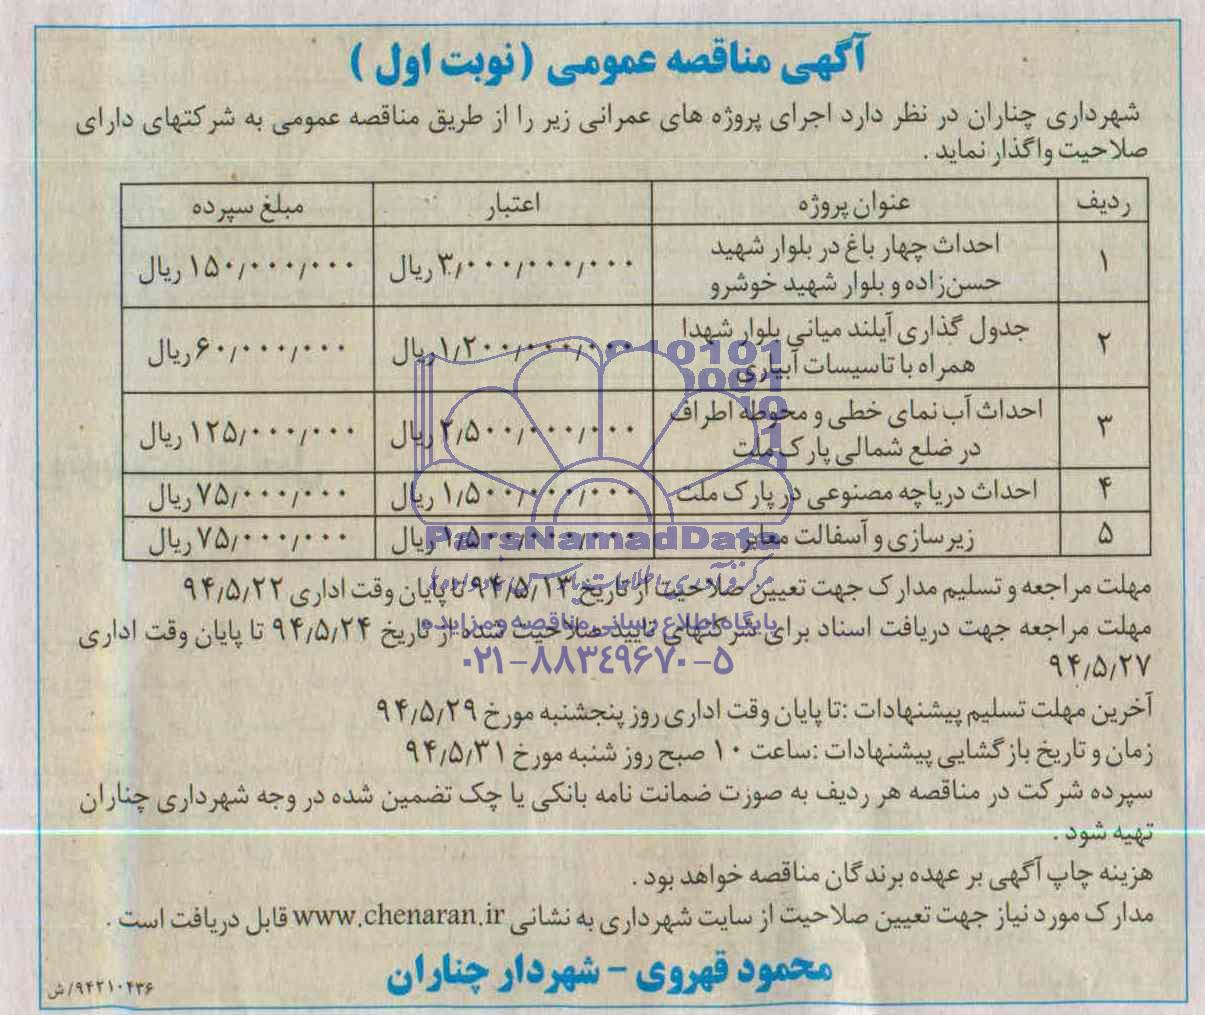 آگهی مناقصه عمومی (نوبت اول)
شهرداری چناران در نظر دارد اجرای پروژه های عمرانی زیر را از طریق مناقصه عمومی به شرکتهای دارای
صلاحیت واگذار نماید .
ردیف عنوان پروژه اعتبار مبلغ سپرده
۱ احداث چهار باغ در بلوار شهید ۳/۰۰۰/۰۰۰/۰۰۰ ریال ۱۵۰/۰۰۰/۰۰۰ ریال
حسن‌زاده و بلوار شهید خوشرو
۲ جدول گذاری آیلند میانی بلوار شهدا ۱/۲۰۰/۰۰۰/۰۰۰ ریال ۶۰/۰۰۰/۰۰۰ ریال
همراه با تاسیسات آبیاری
۳ احداث آب نمای خطی و محوطه اطراف ۲/۵۰۰/۰۰۰/۰۰۰ ریال ۱۲۵/۰۰۰/۰۰۰ ریال
در ضلع شمالی پارک ملت
۴ احداث دریاچه مصنوعی در پارک ملت ۱/۵۰۰/۰۰۰/۰۰۰ ۷۵/۰۰۰/۰۰۰ ریال
۵ زیرسازی و آسفالت معابر ۱/۵۰۰/۰۰۰/۰۰۰ ریال ۷۵/۰۰۰/۰۰۰ ریال
ParsNamadData
مهلت مراجعه و تسلیم مدارک جهت تعیین صلاحیت از تاریخ ۹۴/۵/۱۳ تا پایان وقت اداری ۹۴/۵/۲۲
پایگاه اطلاع رسانی مناقصه و مزایده
مهلت مراجعه جهت دریافت اسناد برای شرکتهای تایید صلاحیت شده از تاریخ ۹۴/۵/۲۴ تا پایان وقت اداری
۹۴/۵/۲۷
۰۲۱-۸۸۳٤۹۶۷۰-۵
آخرین مهلت تسلیم پیشنهادات :تا پایان وقت اداری روز پنجشنبه مورخ ۹۴/۵/۲۹
زمان و تاریخ بازگشایی پیشنهادات :ساعت ۱۰ صبح روز شنبه مورخ ۹۴/۵/۳۱
سپرده شرکت در مناقصه هر ردیف به صوزت ضمانت نامه بانکی یا چک تضمین شده در وجه شهرداری چناران
تهیه شود .
هزینه چاپ آگهی بر عهده برندگان مناقصه خواهد بود .
مدارک مورد نیاز جهت تعیین صلاحیت از سایت شهرداری به نشانی www.chenaran.ir قابل دریافت است .
محمود قهروی - شهردار چناران
۹۴۲۱۰۴۳۶/ش